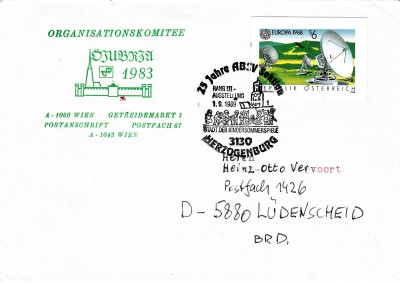 ORGANISATIONSKOMITEE
1983
A - 1060 WIEN GETREIDEMARKT 1
POSTANSCHRIFT POSTFACH 67
A - 1043 WIEN
EUROPA 1988 S6
REPUBLIK ÖSTERREICH
25 Jahre ABSV
RANG III -
AUSSTELLUNG
1. 9. 1989
STADT DER KINDERSOMMERSPIELE
3130
HERZOGENBURG
Herrn
Heinz-Otto Vervoort
Postfach 1426
D - 5880 LÜDENSCHEID
BRD.